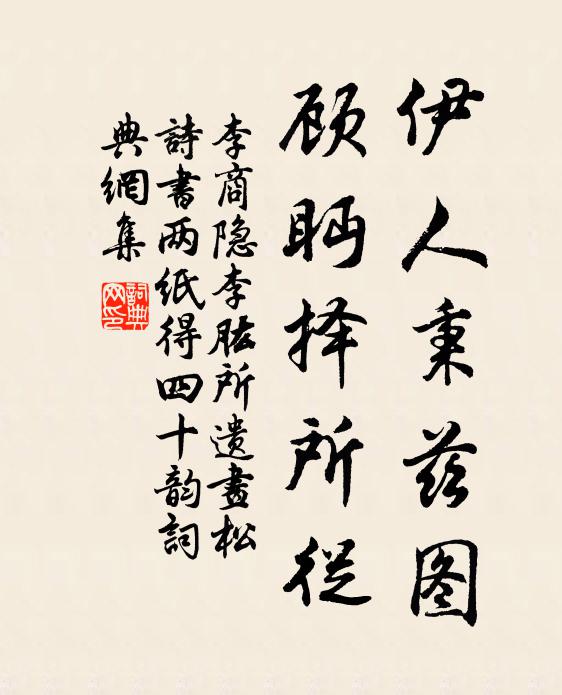 伊人秉兹图
顾眄择所从
李商隐李肱所遗畫松
詩書两纸得四十韵詞
典網集
詞典
网印